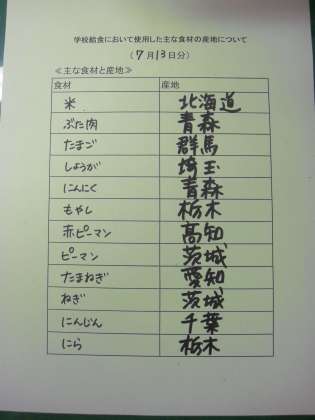 学校給食において使用した主な食材の産地について
(7月13日分)
≪主な食材と産地≫
食材 産地
米 北海道
ぶた肉 青森
たまご 群馬
しょうが 埼玉
にんにく 青森
もやし 栃木
赤ピーマン 高知
ピーマン 茨城
たまねぎ 愛知
ねぎ 茨城
にんじん 千葉
にら 栃木